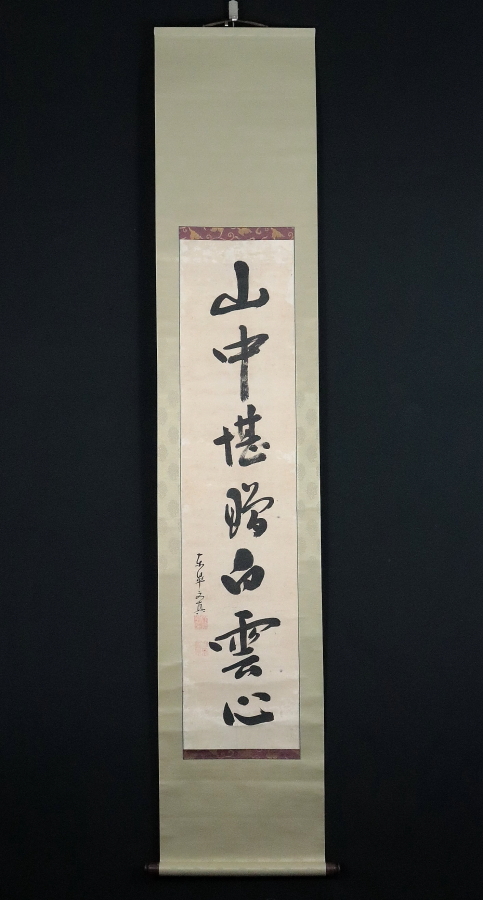 山中堪贈白雲心